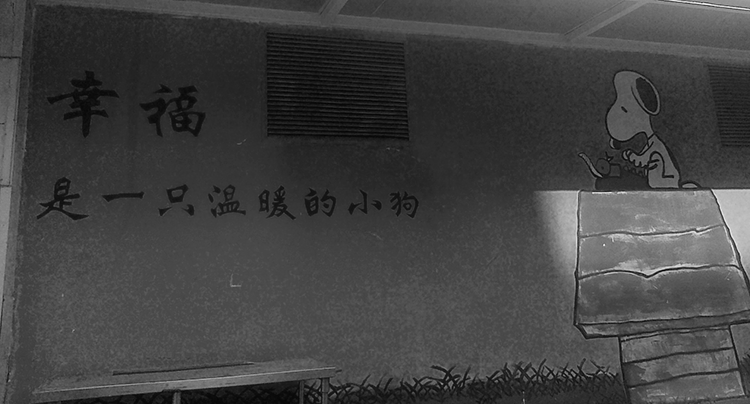 幸福
是一只温暖的小狗